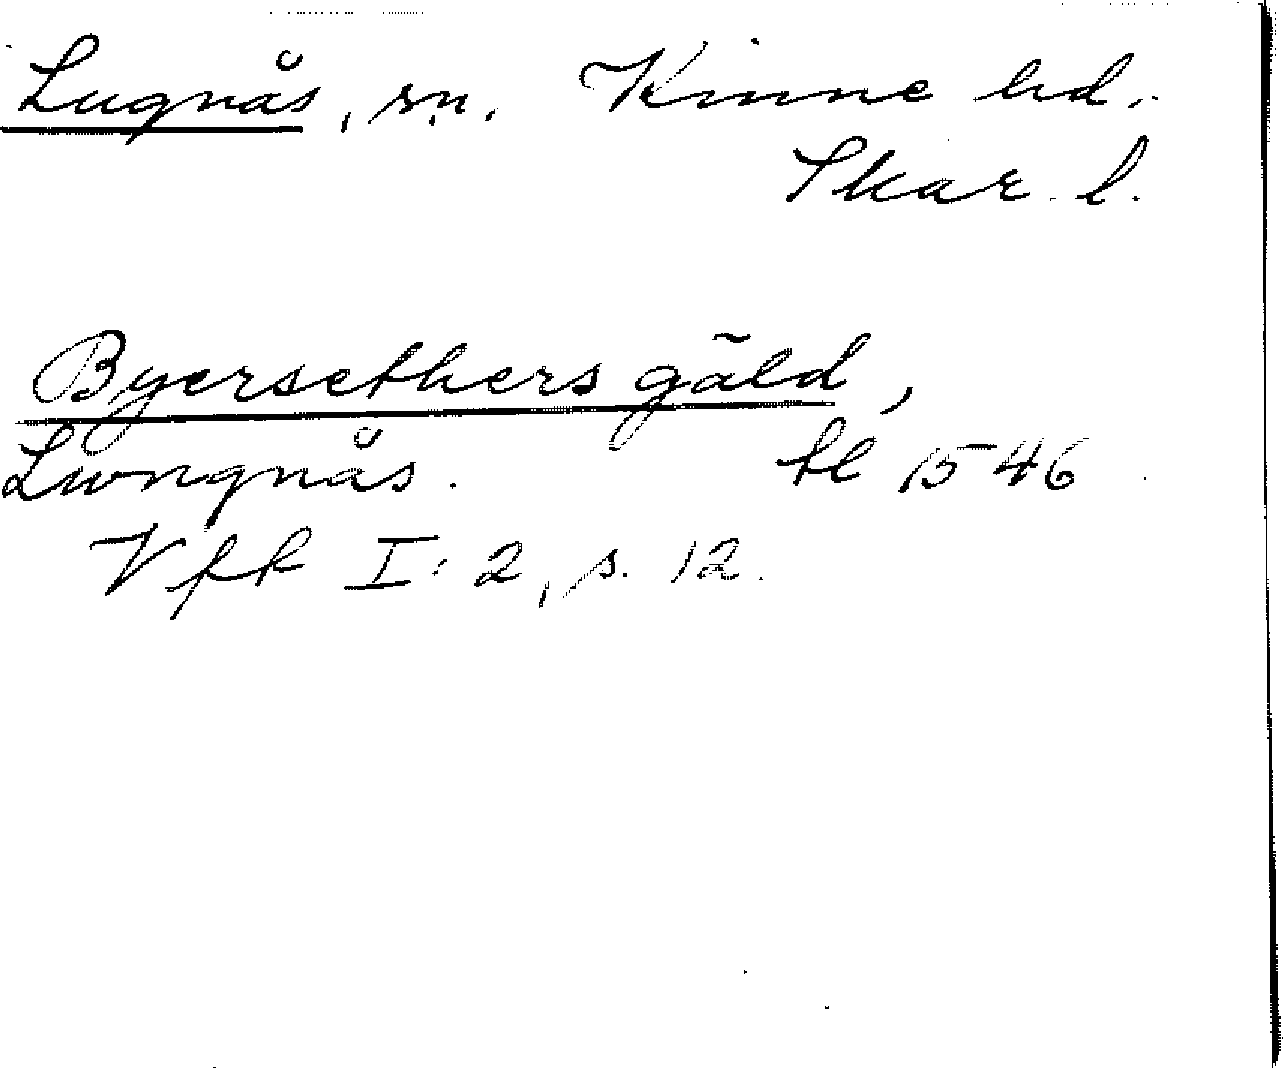 Lugnås, sn. Kinne hd.
Skar. l.
Byersethers gäld,
Lwngnås. fl 1546
Vfk I: 2, s. 12.